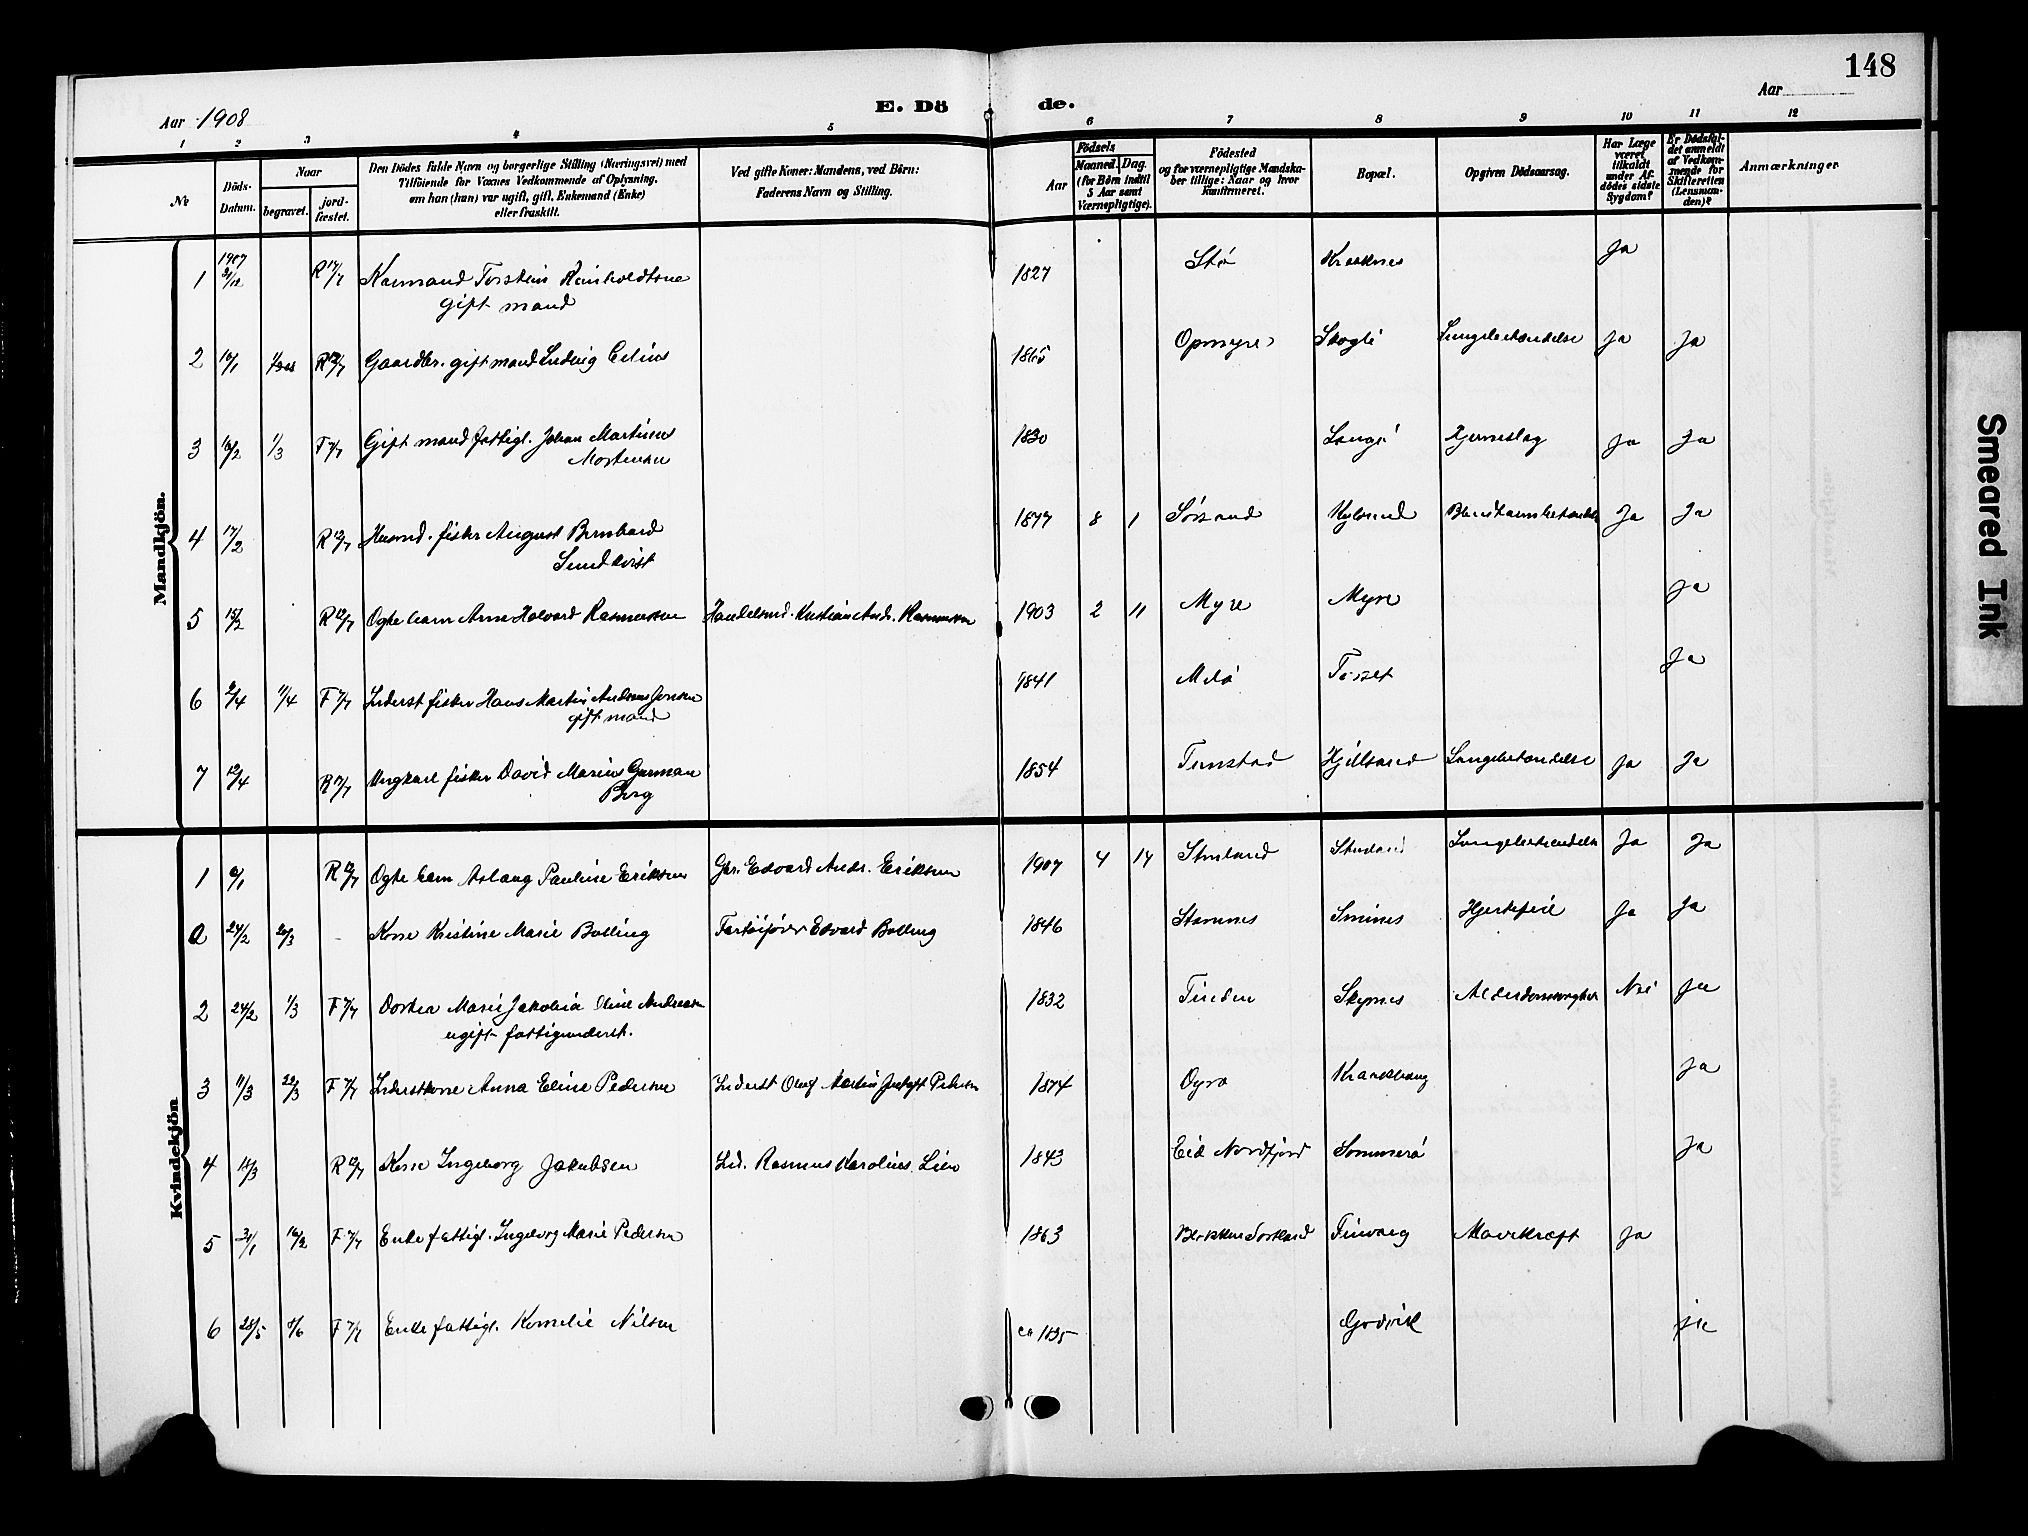 148
Aar 1908
E. Dö de.
Aar
1 2 3 4 5 6 7 8 9 10 11 12
№
Döds-Datum.
Naar
begravet.
jord-fæstet.
Den Dödes fulde Navn og borgerlige Stilling (Næringsvei) med
Tilföiende for Voxnes Vedkommende af Oplysning,
om han (hun) var ugift, gift, Enkemand (Enke)
eller fraskilt.
Ved gifte Koner: Mandens, ved Börn:
Faderens Navn og Stilling.
Födsels
Aar
Maaned. Dag.
(for Börn indtil
5 Aar samt
Værnepligtige).
Födested
og for værnepligtige Mandska-
ber tillige: Naar og hvor
konfirmeret.
Bopæl.
Opgiven Dödsaarsag.
Har Læge
været
tilkaldt
under Af-
dödes sidste
Sygdom?
Er Dödsfal-
det anmeldt
af Vedkom-
mende for
Skifteretten
(Lensman-
den)?
Anmærkninger
Mandkjön.
1 1907 31/12 R 17/7 Kaarmand Torstein Reinholdtsen 1827 Stø Kraaknes Ja
gift mand
2 10/1 R 12/7 Gaardbr. gift mand Ludvig Celius 1865 Opmyre Skogli Lungebetændelse Ja Ja
3 16/2 1/3 F 7/7 Gift mand fattigl. Johan Martinus 1830 Langø Hjerneslag Ja Ja
Mortensen
4 17/2 R 12/7 Husmd. fisker August Bernhard 1877 8 1 Sørsand Ja Ja
Sundkvist
5 15/2 R 12/7 Ogte barn Arne Halvard Rasmussen Handelsmd. Kristian Andr. Rasmussen 1903 2 11 Myre Myre Ja
6 2/4 11/4 F 7/7 Inderst fisker Hans Martin Andreas Jensen 1841 Melø Torset Ja
gift mand
7 12/4 R 17/7 Ungkarl fisker David Marius German 1854 Tunstad Hjellsand Lungebetændelse Ja Ja
Berg
Kvindekjön
1 6/1 R 12/7 Ogte barn Aslaug Pauline Eriksen Gbr. Edvard Andr. Eriksen 1907 4 14 Stusland Lungebetændelse Ja Ja
2 24/2 20/3 - Kone Kristine Marie Bolling Fartøifører Edvard Bolling 1846 Stamnes Smines Hjertefeil Ja Ja
2 24/2 1/3 F 7/7 Dortea Marie Jakobia Oline Andreasen 1832 Tinden Skynes Nei Ja
ugift fattigunderst.
3 11/3 22/3 F 7/7 Inderstkone Anna Eline Pedersen Inderst Oluf Martin Pedersen 1874 Ogra Ja
4 18/3 R 12/7 Kone Ingeborg Jakobsen Ind. Rasmus Karolius Lien 1843 Eid Nordfjord Sommerø Ja
5 31/1 16/2 F 7/7 Enke fattigl. Ingeborg Marie Pedersen 1863 Blokken Sortland Finvaag Mavekræft Ja
6 28/5 F 7/7 Enke fattigl. Kornelie Nilsen ca 1835 Godvik Ja
Smeared Ink